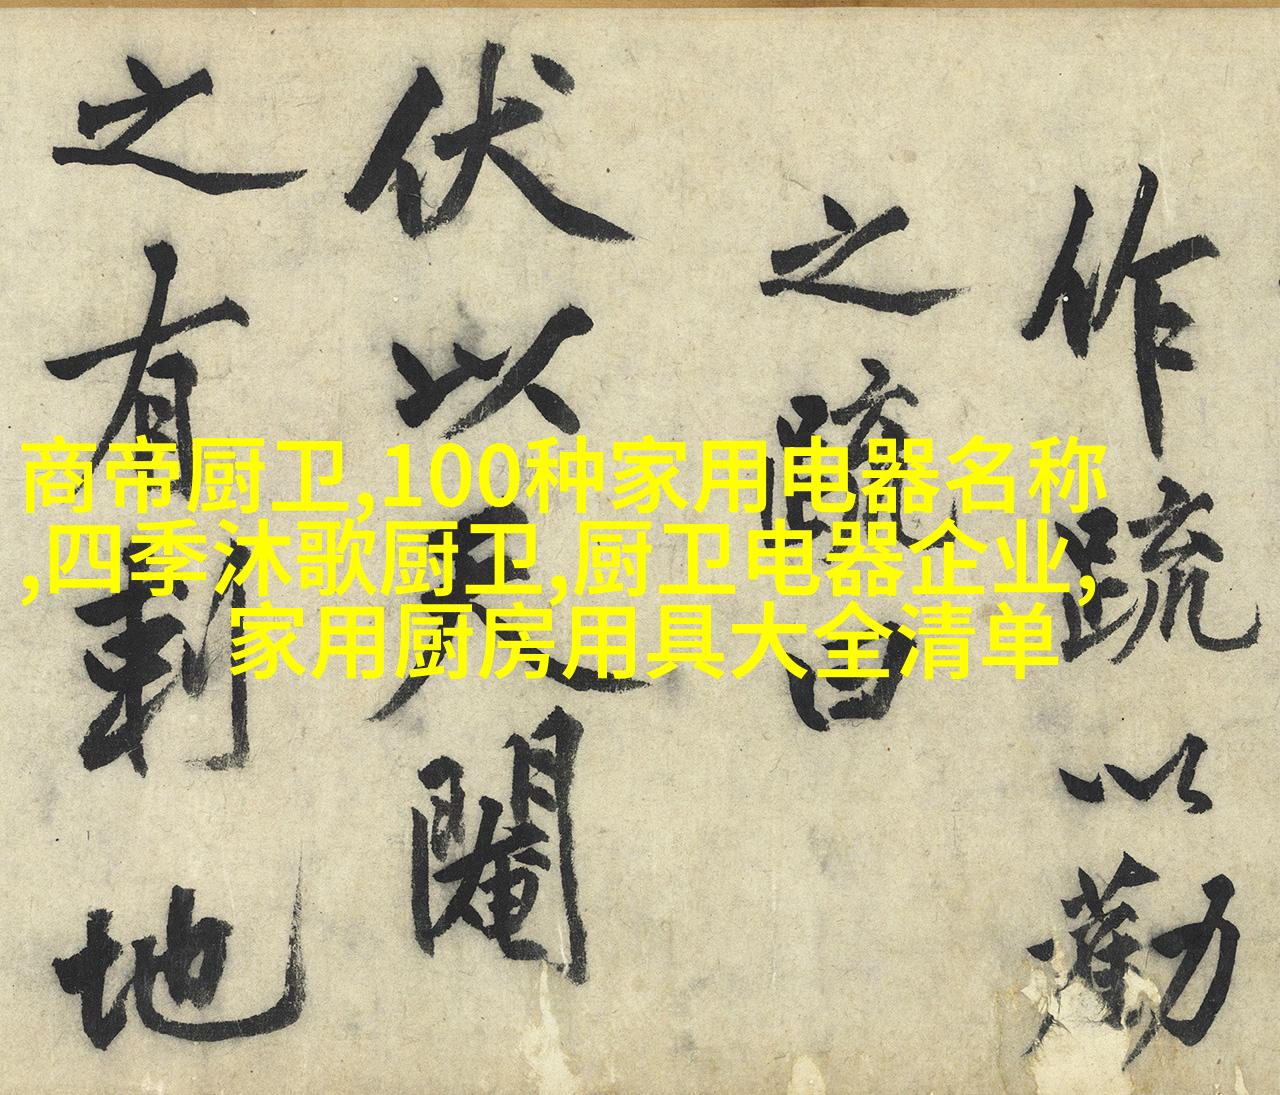 作疏以勸
之疏曰
伏以閹
之有剩地
商帝厨卫,100种家用电器名称
,四季沐歌厨卫,厨卫电器企业,
家用厨房用具大全清单